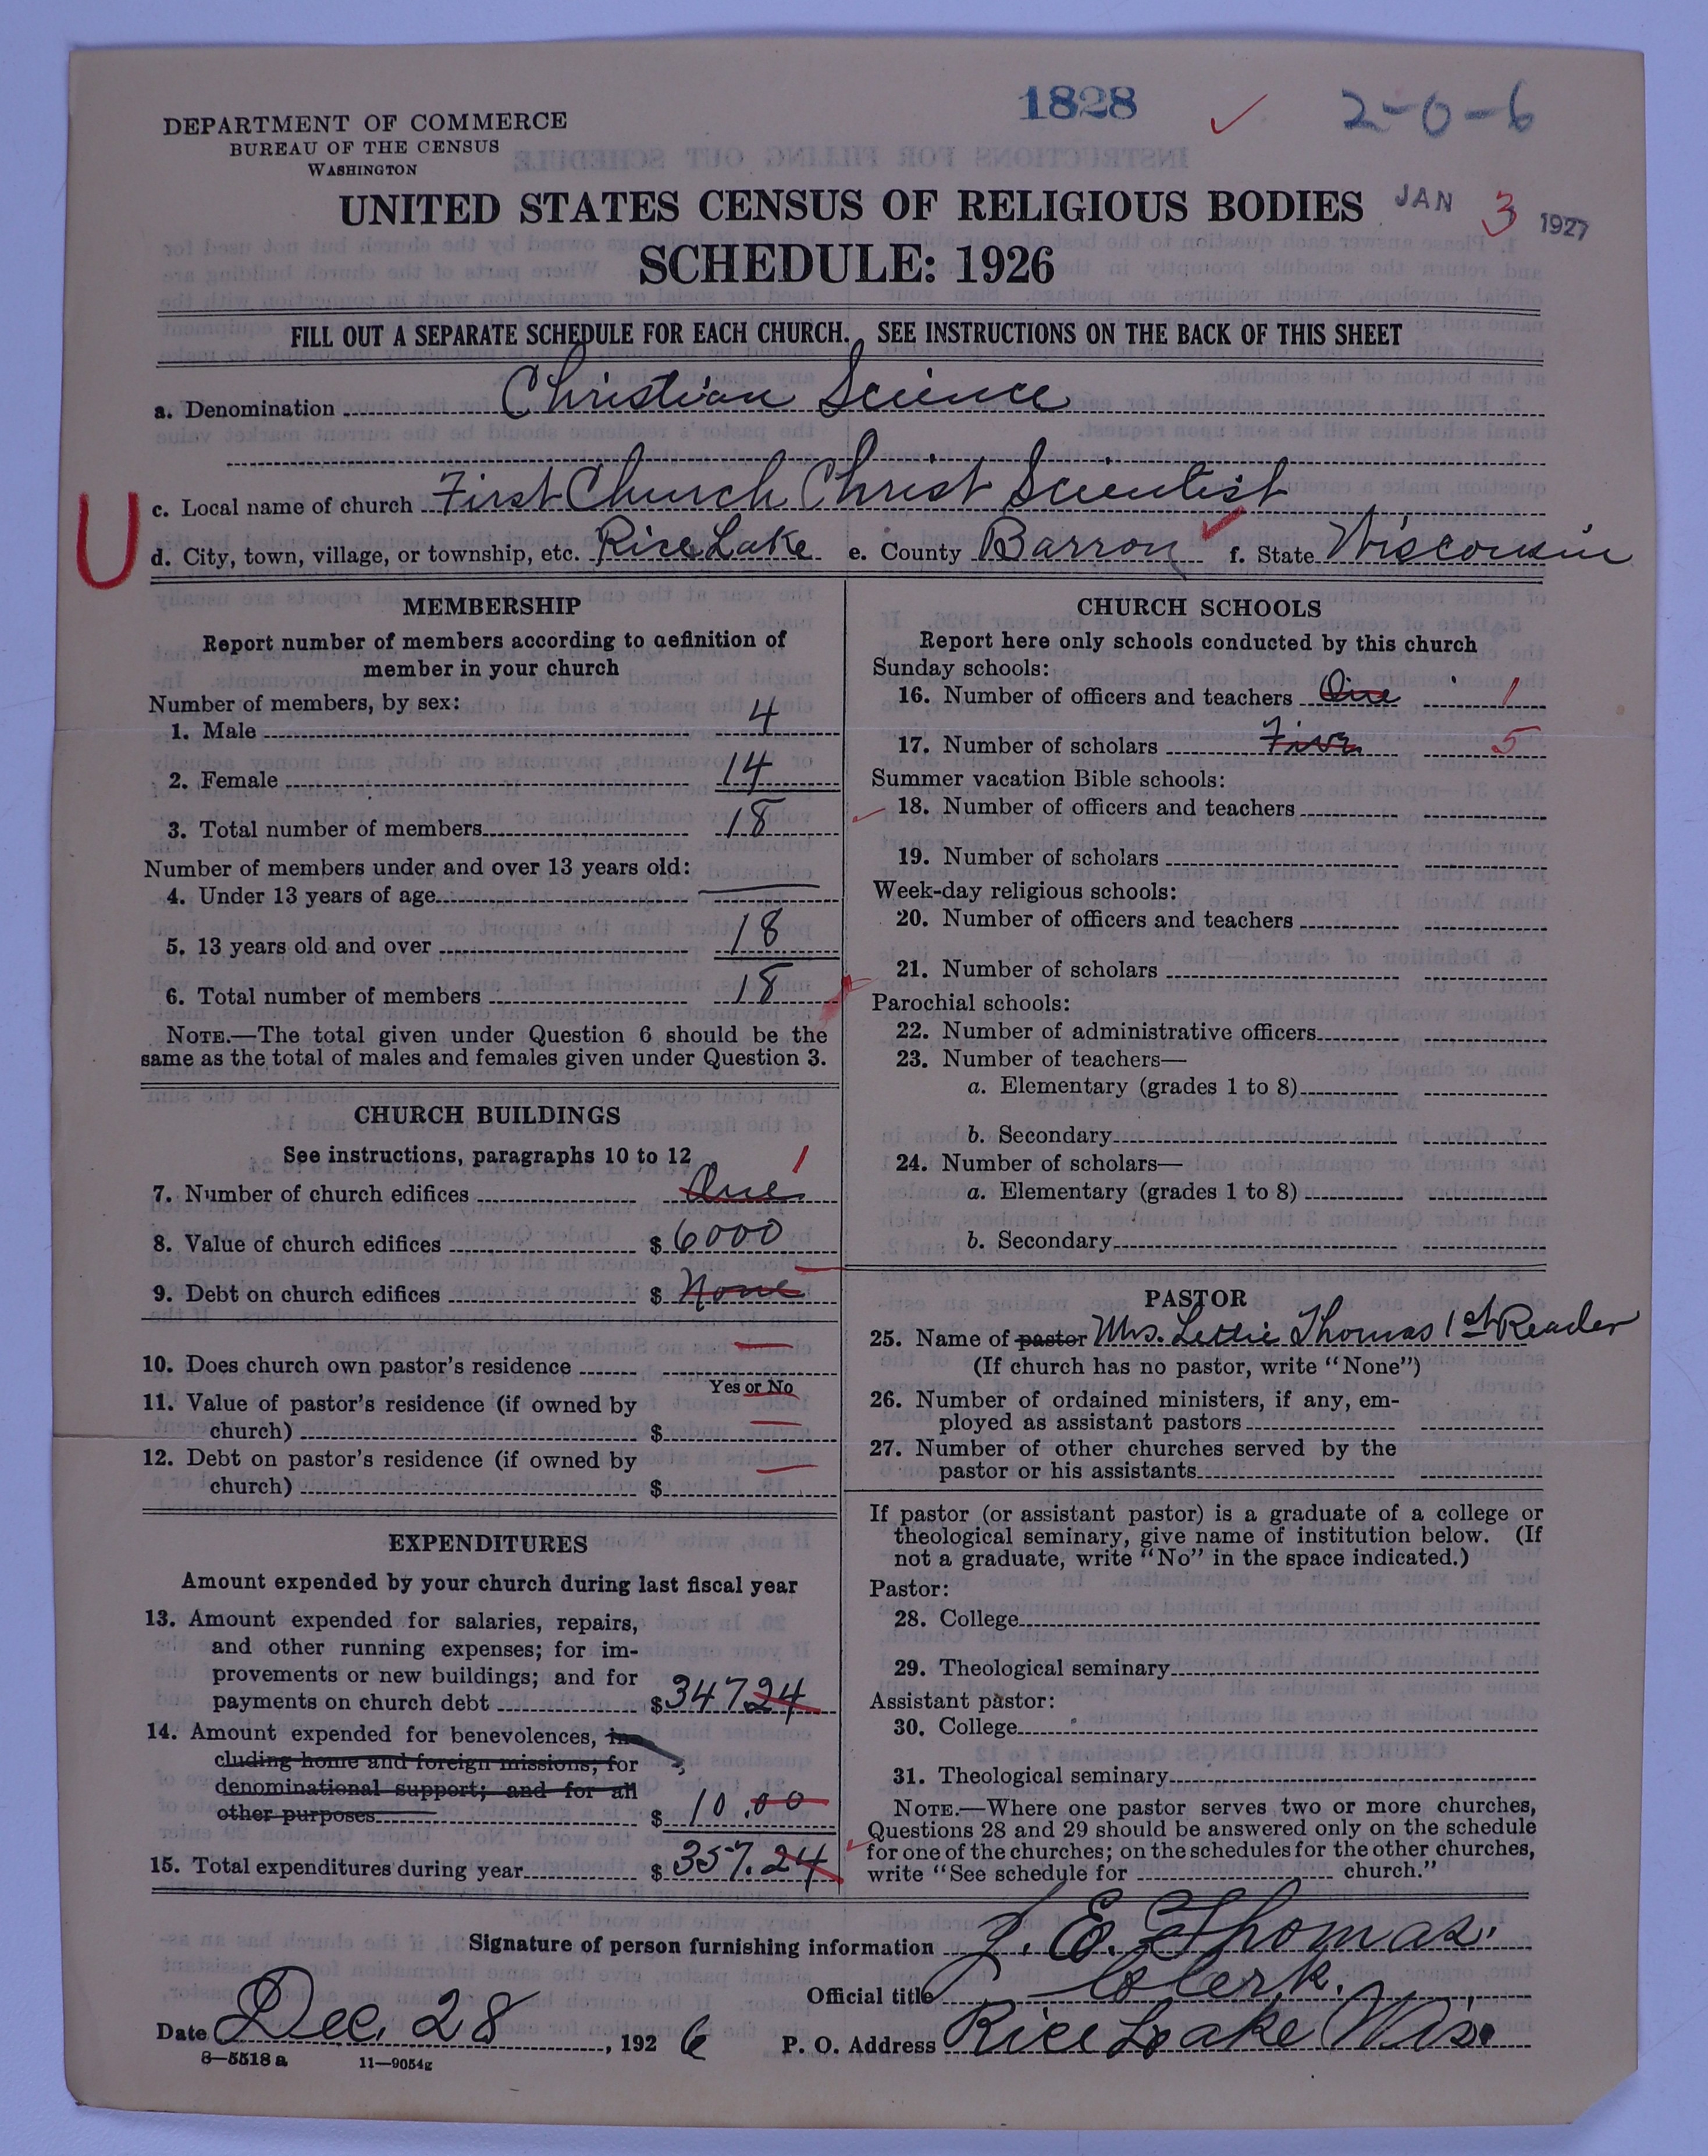 1828 2-0-6
DEPARTMENT OF COMMERCE
BUREAU OF THE CENSUS
WASHINGTON
UNITED STATES CENSUS OF RELIGIOUS BODIES JAN 3 1927
SCHEDULE: 1926
FILL OUT A SEPARATE SCHEDULE FOR EACH CHURCH. SEE INSTRUCTIONS ON THE BACK OF THIS SHEET
a. Denomination Christian Science
U
c. Local name of church First Church Christ Scientist
d. City, town, village, or township, etc. Rice Lake e. County Barron f. State Wisconsin
MEMBERSHIP
Report number of members according to definition of
member in your church
Number of members, by sex:
1. Male 4
2. Female 14
3. Total number of members 18
Number of members under and over 13 years old:
4. Under 13 years of age
5. 13 years old and over 18
6. Total number of members 18
NOTE.—The total given under Question 6 should be the
same as the total of males and females given under Question 3.
CHURCH BUILDINGS
See instructions, paragraphs 10 to 12
7. Number of church edifices One 1
8. Value of church edifices $6000
9. Debt on church edifices $ None
10. Does church own pastor's residence
Yes or No
11. Value of pastor's residence (if owned by
church) $
12. Debt on pastor's residence (if owned by
church) $
EXPENDITURES
Amount expended by your church during last fiscal year
13. Amount expended for salaries, repairs,
and other running expenses; for im-
provements or new buildings; and for
payments on church debt $347.24
14. Amount expended for benevolences, in-
cluding home and foreign missions; for
denominational support; and for all
other purposes $10.00
15. Total expenditures during year $357.24
CHURCH SCHOOLS
Report here only schools conducted by this church
Sunday schools:
16. Number of officers and teachers One 1
17. Number of scholars Five 5
Summer vacation Bible schools:
18. Number of officers and teachers
19. Number of scholars
Week-day religious schools:
20. Number of officers and teachers
21. Number of scholars
Parochial schools:
22. Number of administrative officers
23. Number of teachers—
a. Elementary (grades 1 to 8)
b. Secondary
24. Number of scholars—
a. Elementary (grades 1 to 8)
b. Secondary
PASTOR
25. Name of pastor Mrs. Lettie Thomas 1st Reader
(If church has no pastor, write "None")
26. Number of ordained ministers, if any, em-
ployed as assistant pastors
27. Number of other churches served by the
pastor or his assistants
If pastor (or assistant pastor) is a graduate of a college or
theological seminary, give name of institution below. (If
not a graduate, write "No" in the space indicated.)
Pastor:
28. College
29. Theological seminary
Assistant pastor:
30. College
31. Theological seminary
NOTE.—Where one pastor serves two or more churches,
Questions 28 and 29 should be answered only on the schedule
for one of the churches; on the schedules for the other churches,
write "See schedule for church."
Signature of person furnishing information J. E. Thomas.
Official title Clerk.
Date Dec. 28, 1926 P. O. Address Rice Lake Wis.
8—5518 a 11—9054g